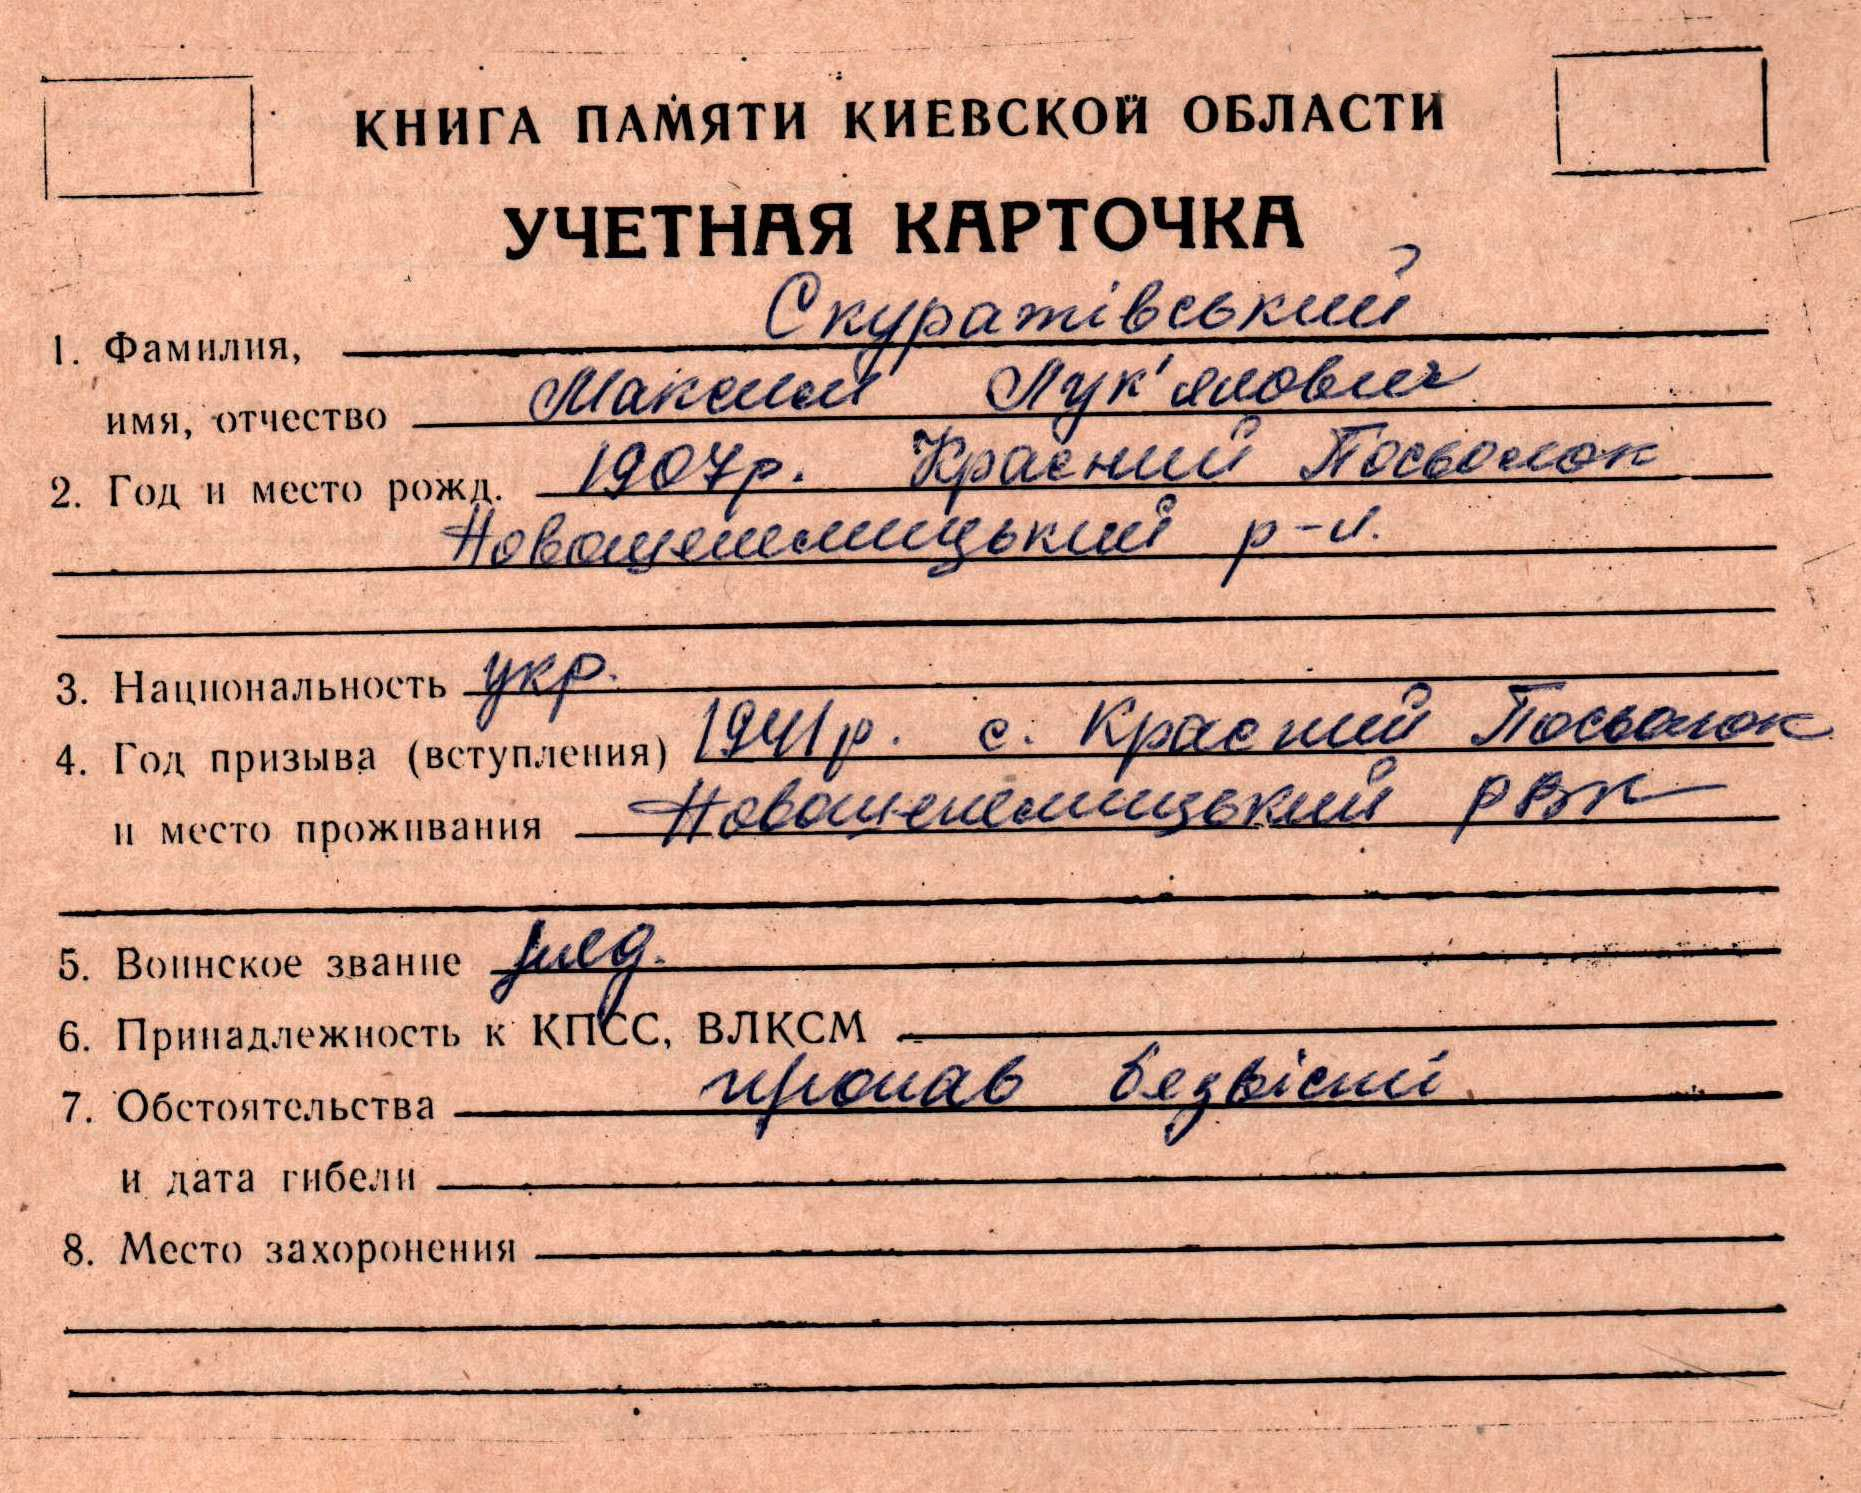 КНИГА ПАМЯТИ КИЕВСКОЙ ОБЛАСТИ
УЧЕТНАЯ КАРТОЧКА
1. Фамилия, Скуратівський
имя, отчество Максим Лук'янович
2. Год и место рожд. 1907р. Красний Посьолок
Новошепелицький р-н.
3. Национальность укр.
4. Год призыва (вступления) 1941р. с. Красний Посьолок
и место проживания Новошепелицький РВК
5. Воинское звание
6. Принадлежность к КПСС, ВЛКСМ
7. Обстоятельства пропав безвісті
и дата гибели
8. Место захоронения